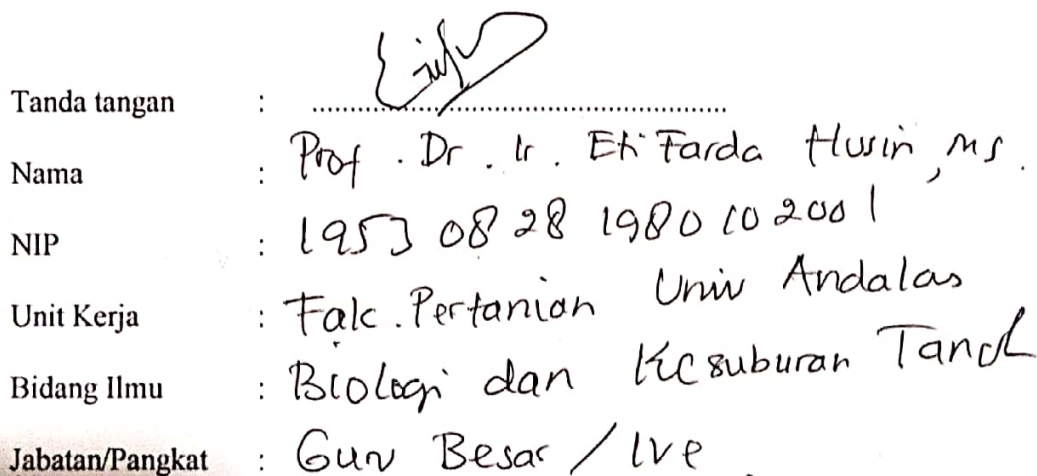 Tanda tangan :
Nama : Prof. Dr. Ir. Eti Farda Husin, MS.
NIP : 19530828 198010 2001
Unit Kerja : Fak. Pertanian Univ Andalas
Bidang Ilmu : Biologi dan Kesuburan Tanah
Jabatan/Pangkat : Guru Besar / IVe